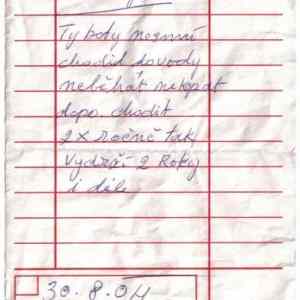 Ty body nesmí
chodid do vody
neběhát nekopat
depo. chodit
2x ročně tak
Vydrží 2 Roky
i déle
30.8.04